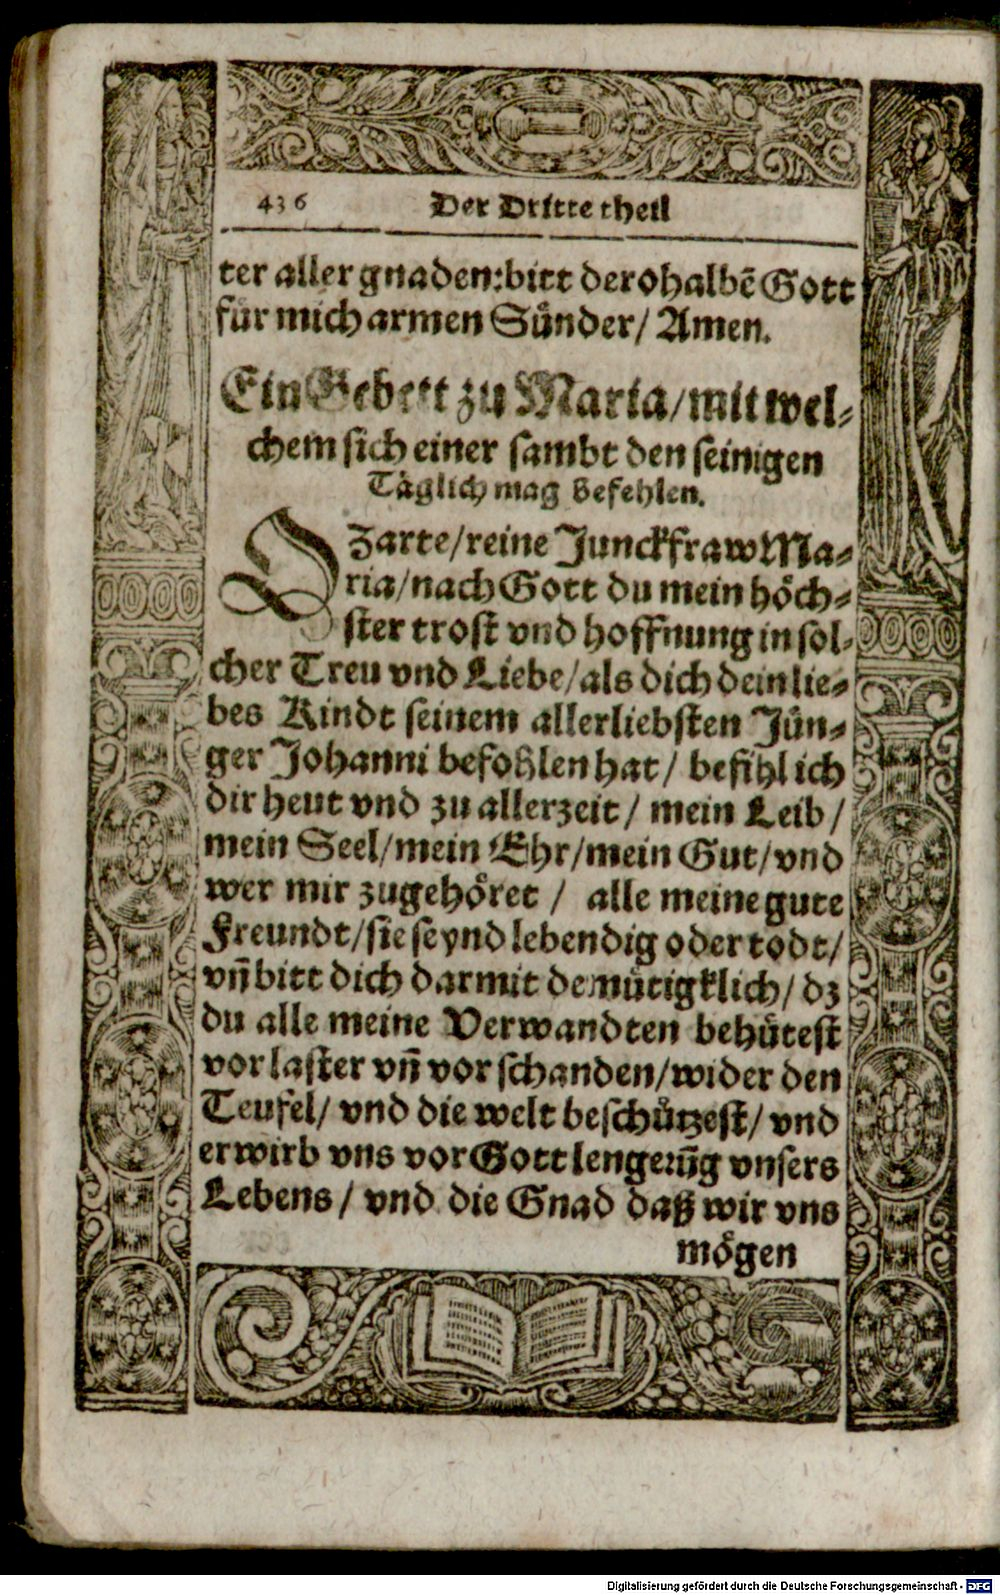 436 Der Dritte theil
ter aller gnaden: bitt derohalbē Gott
für mich armen Sünder/ Amen.
Ein Gebett zu Maria/ mit wel-
chem sich einer sambt den seinigen
Täglich mag befehlen.
O Zarte/ reine Junckfraw Ma-
ria/ nach Gott du mein höch-
ster trost vnd hoffnung in sol-
cher Treu vnd Liebe/ als dich dein lie-
bes Kindt seinem allerliebsten Jün-
ger Johanni befohlen hat/ befihl ich
dir heut vnd zu allerzeit/ mein Leib/
mein Seel/ mein Ehr/ mein Gut/ vnd
wer mir zugehöret/ alle meine gute
Freundt/ sie seynd lebendig oder todt/
vn̄ bitt dich darmit demütigklich/ dz
du alle meine Verwandten behütest
vor laster vn̄ vor schanden/ wider den
Teufel/ vnd die welt beschützest/ vnd
erwirb vns vor Gott lengerūg vnsers
Lebens/ vnd die Gnad daß wir vns
mögen
Digitalisierung gefördert durch die Deutsche Forschungsgemeinschaft - DFG